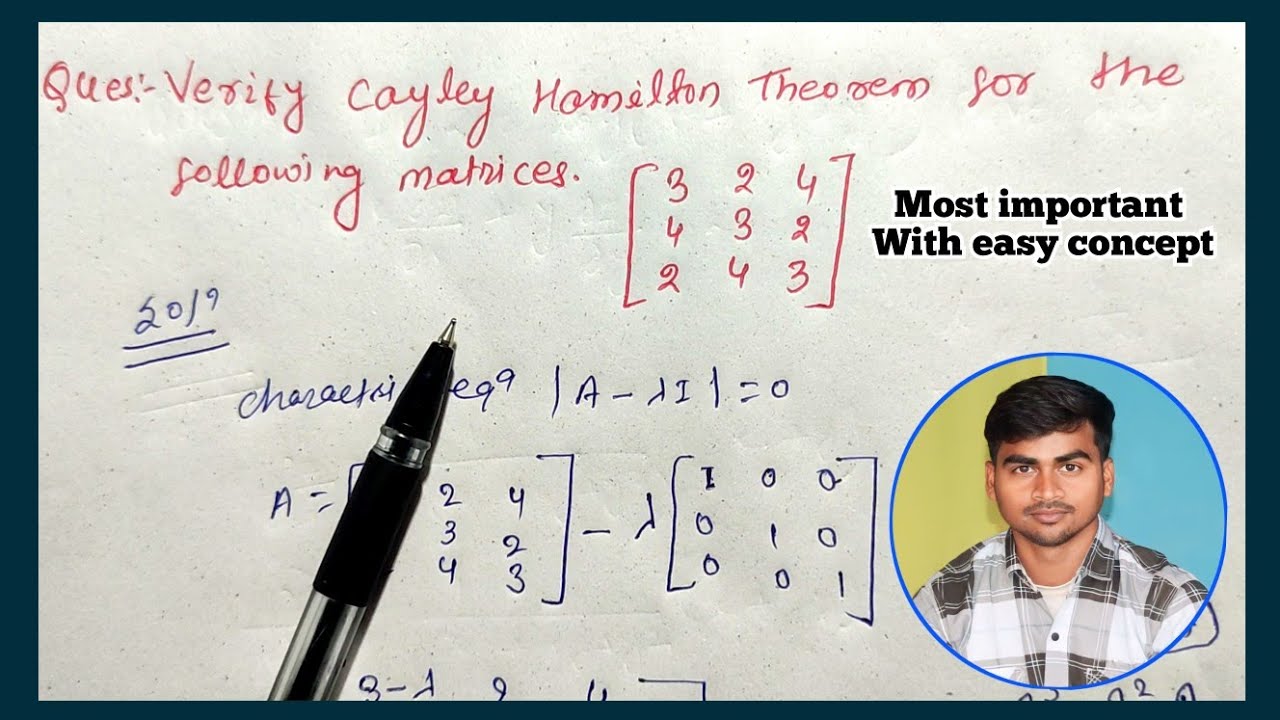 Ques:- Verify Cayley Hamilton Theorem for the
following matrices.
[3 2 4
4 3 2
2 4 3]
Most important
With easy concept
2019
eqn |A - λI| = 0
A = [ 2 4
3 2
4 3] - λ [1 0 0
0 1 0
0 0 1]
3-λ 2 4